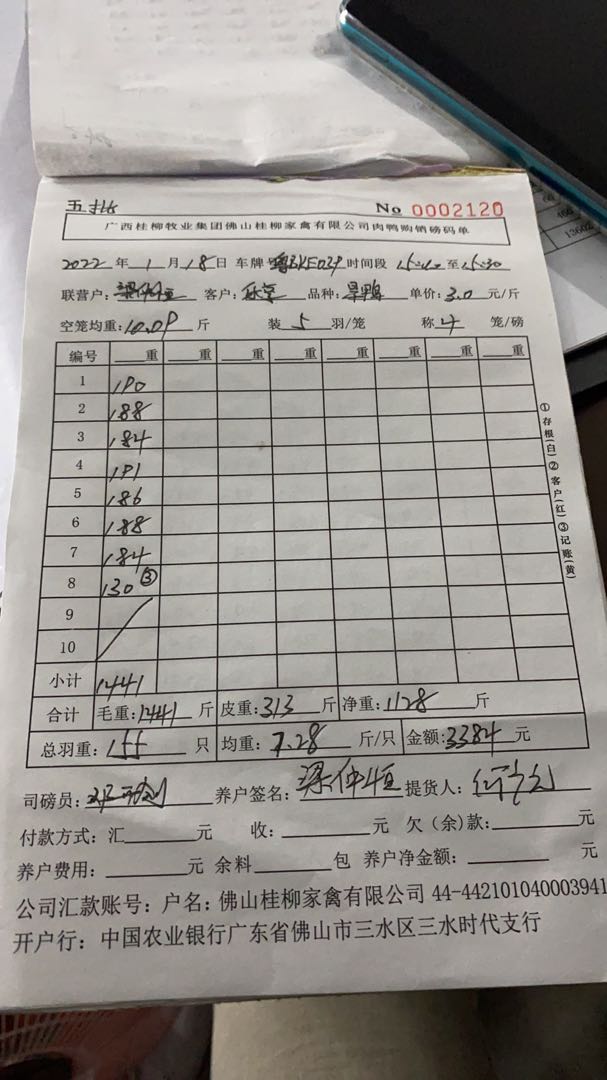 No 0002120
广西桂柳牧业集团佛山桂柳家禽有限公司肉鸭购销磅码单
2022 年 1 月 18 日 车牌号 时间段 至 15:30
联营户: 客户: 品种: 旱鸭 单价: 3.0 元/斤
空笼均重: 10.09 斤 装 5 羽/笼 称 4 笼/磅
编号 重 重 重 重 重 重 重 重
1 190
2 188
3 184
4 191
5 186
6 188
7 184
8 130 ③
9
10
小计 1441
合计 毛重: 1441 斤 皮重: 313 斤 净重: 1128 斤
总羽重: 155 只 均重: 7.28 斤/只 金额: 3384 元
司磅员: 养户签名: 梁仲恒 提货人:
付款方式: 汇 元 收: 元 欠（余）款: 元
养户费用: 元 余料 包 养户净金额: 元
公司汇款账号: 户名: 佛山桂柳家禽有限公司 44-442101040003941
开户行: 中国农业银行广东省佛山市三水区三水时代支行
①存根(白)②客户(红)③记账(黄)
13602